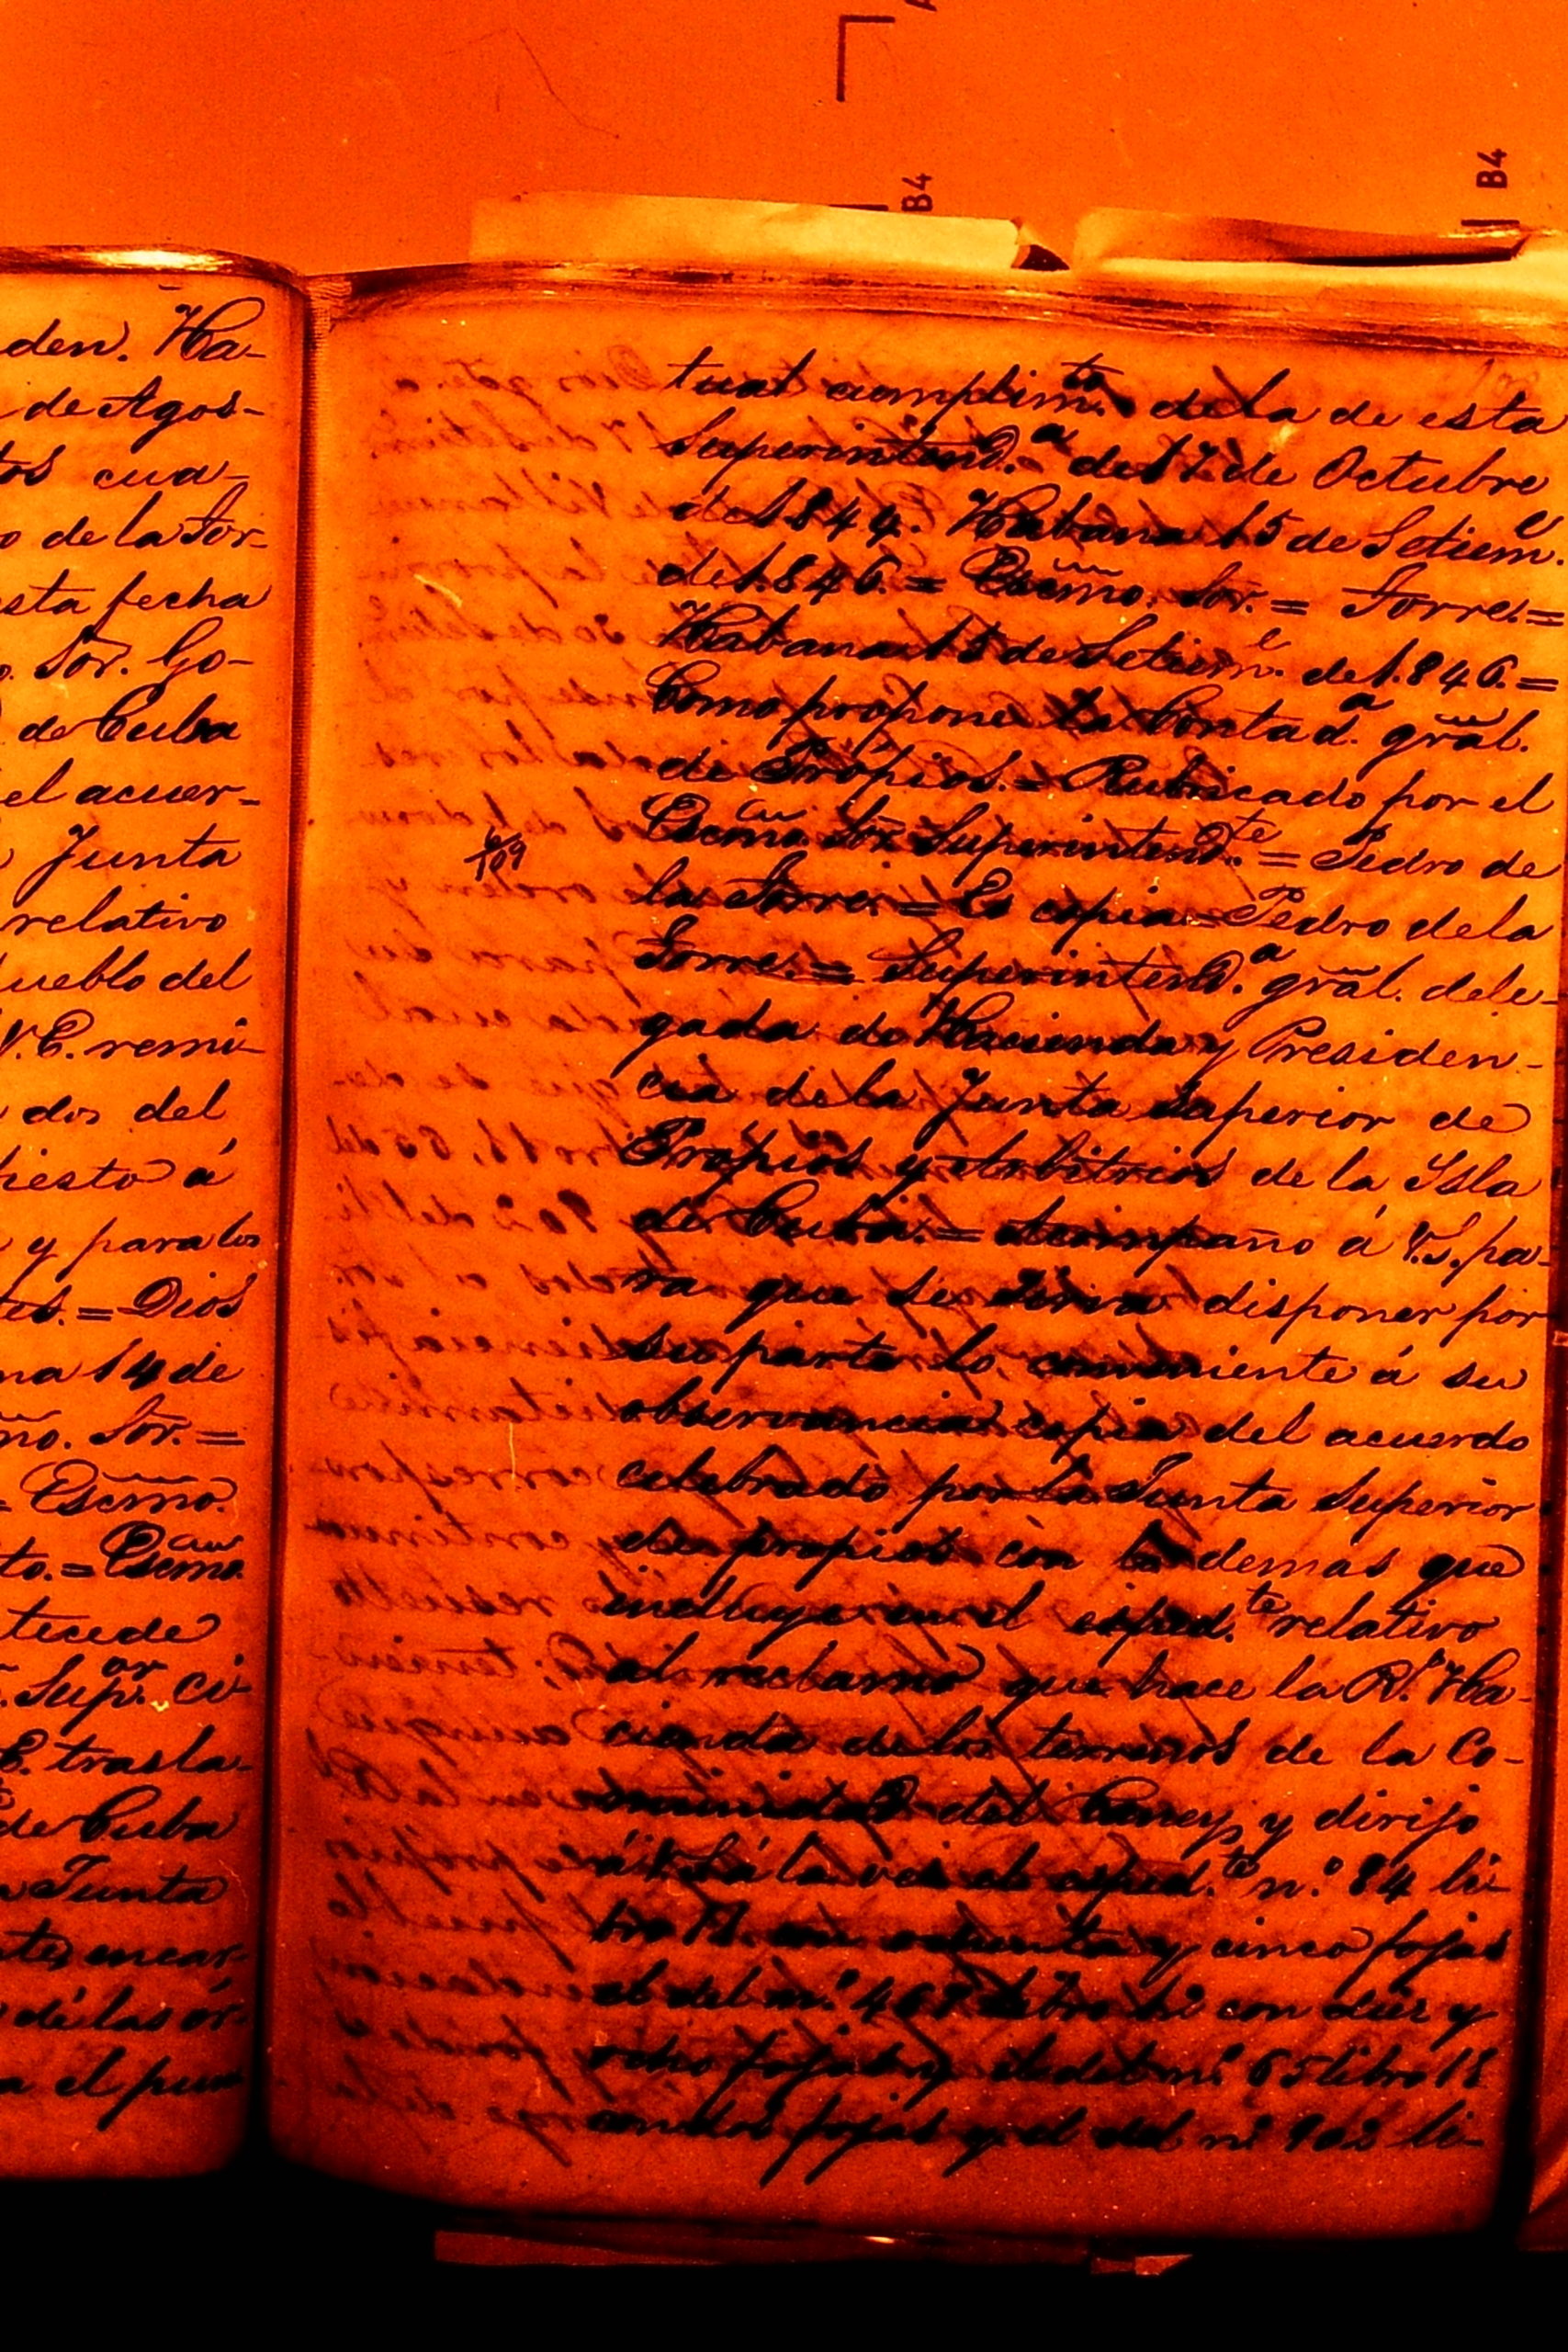 den. Ha-
de Agos-
tos cua-
o de la Tor-
esta fecha
o. Sor. Go-
de Cuba
el acuer-
Junta
relativo
pueblo del
V.E. remi-
dos del
puesto á
y para los
tes. = Dios
na 14 de
mo. Sor. =
= Escmo.
to. = Escmo.
tecede
Supor. Ci-
E. trasla-
de Cuba
Junta
encar-
dé las ór-
el pun-
tual cumplimto. de la de esta
Superintenda. de 17 de Octubre
de 1844. Habana 15 de Setieme.
de 1.846. = Escmo. Sor. = Torre. =
Habana 15 de Setieme. de 1.846. =
Como propone la Contada. gral.
de Própios. = Rubricado por el
Escmo. Sor. Superintendte. = Pedro de
la Torre. = Es copia = Pedro de la
Torre. = Superintenda. gral. dele-
gada de Hacienda y Presiden-
cia de la Junta Superior de
Própios y Arbitrios de la Isla
de Cuba. = Acompaño á V.S. pa-
ra que se sirva disponer por
su parte lo conveniente á su
observancia copia del acuerdo
celebrado por la Junta Superior
de propios con lo demas que
incluye en el espedte. relativo
al reclamo que hace la Rl. Ha-
cienda de los terrenos de la Co-
munidad del Caney, y dirijo
á V.S. á la vez el espedte. n.º 84 li-
bro 11 con ochenta y cinco fojas
el del n.º 467 libro con diez y
ocho fojas y el del n.º 65 libro 18
con dos fojas y el del n.º 902 li-
B4
B4